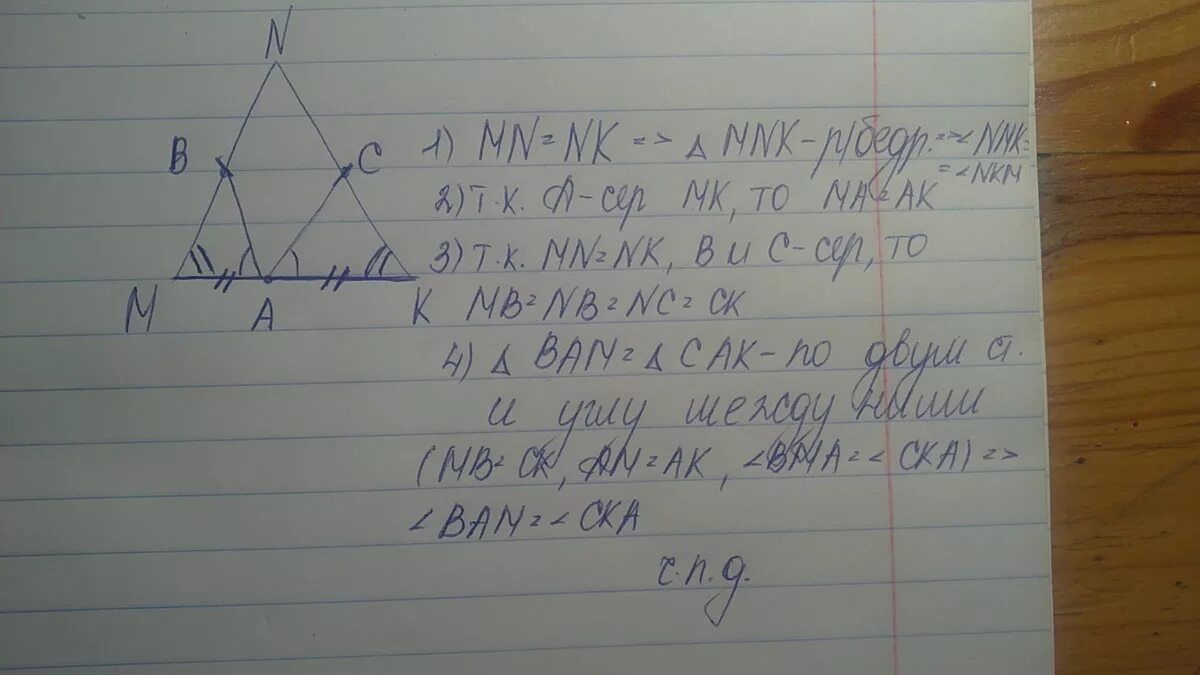 N
B
C
M
A
K
1) MN = NK => △ MNK - р/бедр. => ∠NMK =
= ∠NKM
2) т.к. A - сер MK, то MA = AK
3) т.к. MN = NK, B и C - сер, то
MB = NB = NC = CK
4) △ BAM = △ CAK - по двум ст.
и углу между ними
(MB = CK, AM = AK, ∠BMA = ∠CKA) =>
∠BAM = ∠CKA
ч.п.д.